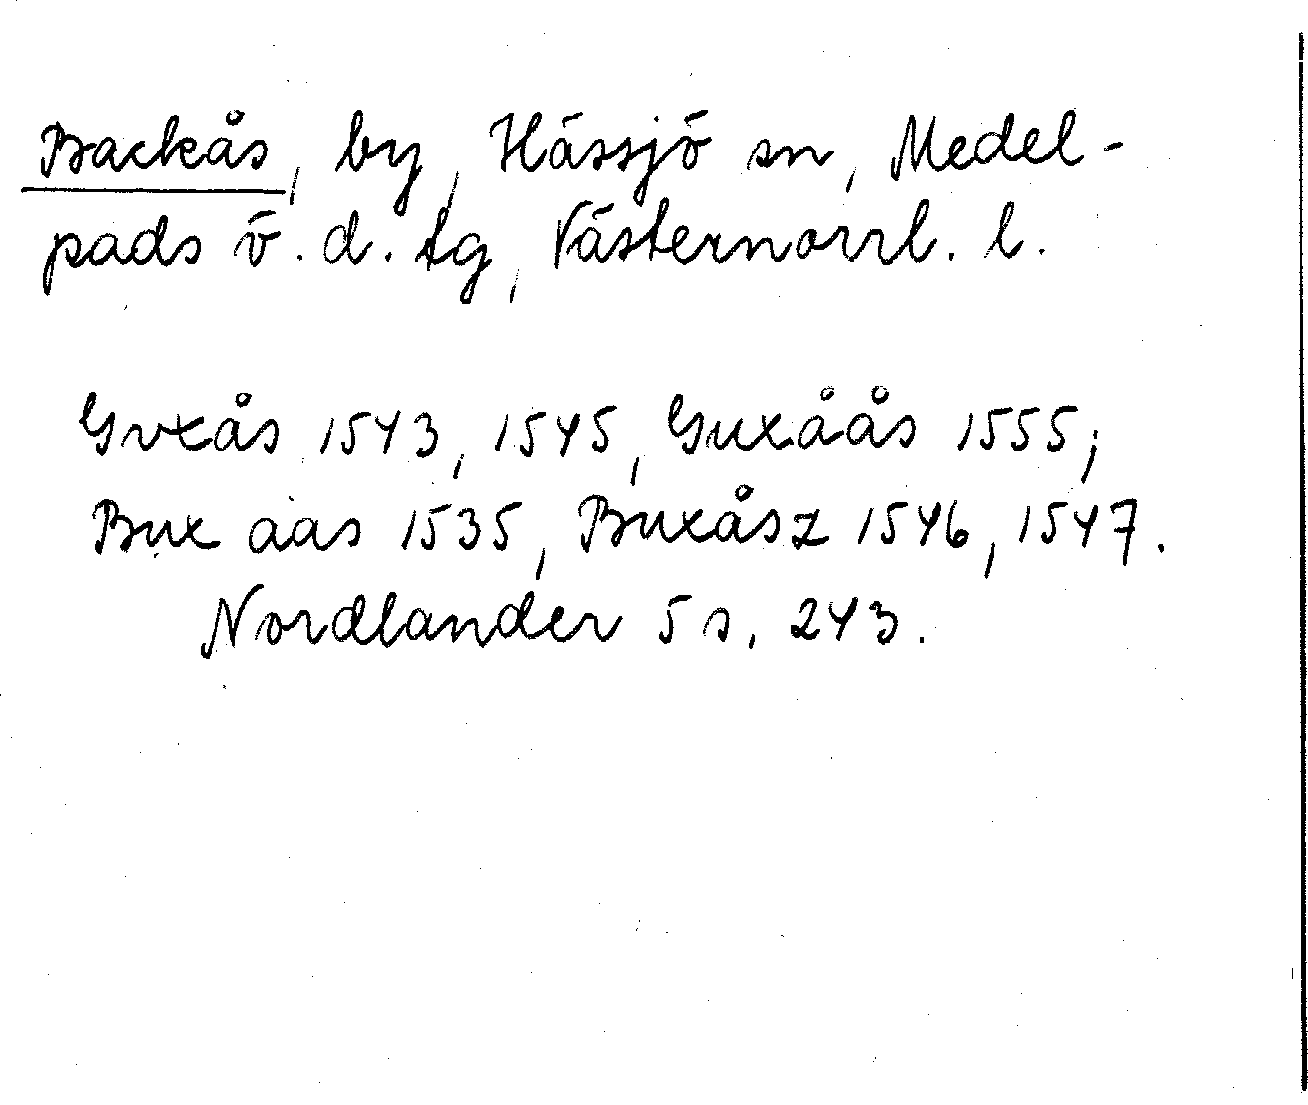 Backås, by, Hässjö sn, Medel-
pads ö.d. tg, Västernorrl. l.
Gvxås 1543, 1545, Guxåås 1555;
Bux aas 1535, Buxåsz 1546, 1547.
Nordlander 5 s. 243.